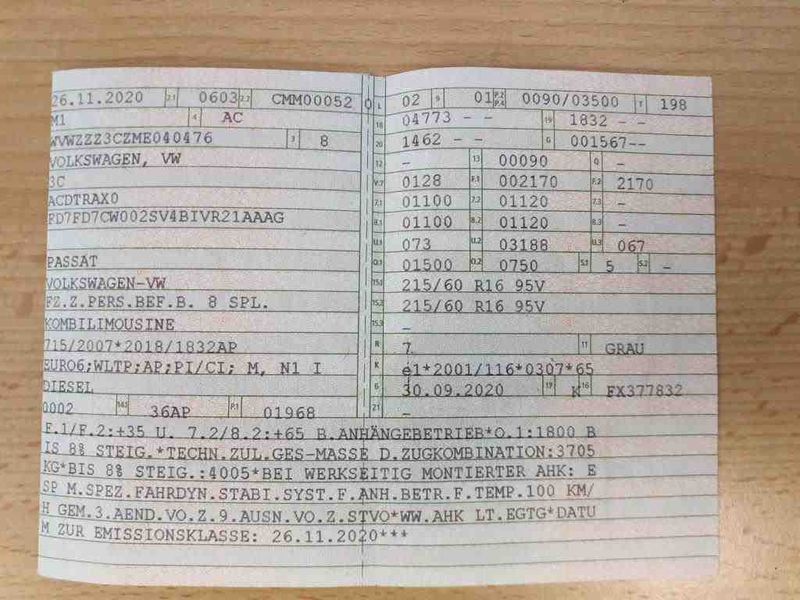 26.11.2020 2.1 0603 2.2 CMM00052 0 L 02 9 01 P.2 P.4 0090/03500 T 198
M1 4 AC 18 04773 - - 19 1832 - -
WVWZZZ3CZME040476 3 8 20 1462 - - G 001567--
VOLKSWAGEN, VW 12 - 13 00090 Q -
3C V.7 0128 F.1 002170 F.2 2170
ACDTRAX0 7.1 01100 7.2 01120 7.3 -
FD7FD7CW002SV4BIVR21AAAG 8.1 01100 8.2 01120 8.3 -
U.1 073 U.2 03188 U.3 067
PASSAT O.1 01500 O.2 0750 S.1 5 S.2 -
VOLKSWAGEN-VW 15.1 215/60 R16 95V
FZ.Z.PERS.BEF.B. 8 SPL. 15.2 215/60 R16 95V
KOMBILIMOUSINE 15.3 -
715/2007*2018/1832AP R 7 11 GRAU
EURO6;WLTP;AP;PI/CI; M, N1 I K e1*2001/116*0307*65
DIESEL 6 30.09.2020 17 K 16 FX377832
0002 14.1 36AP P.1 01968 21 -
F.1/F.2:+35 U. 7.2/8.2:+65 B.ANHÄNGEBETRIEB*O.1:1800 B
IS 8% STEIG.*TECHN.ZUL.GES-MASSE D.ZUGKOMBINATION:3705
KG*BIS 8% STEIG.:4005*BEI WERKSEITIG MONTIERTER AHK: E
SP M.SPEZ.FAHRDYN.STABI.SYST.F.ANH.BETR.F.TEMP.100 KM/
H GEM.3.AEND.VO.Z.9.AUSN.VO.Z.STVO*WW.AHK LT.EGTG*DATU
M ZUR EMISSIONSKLASSE: 26.11.2020***